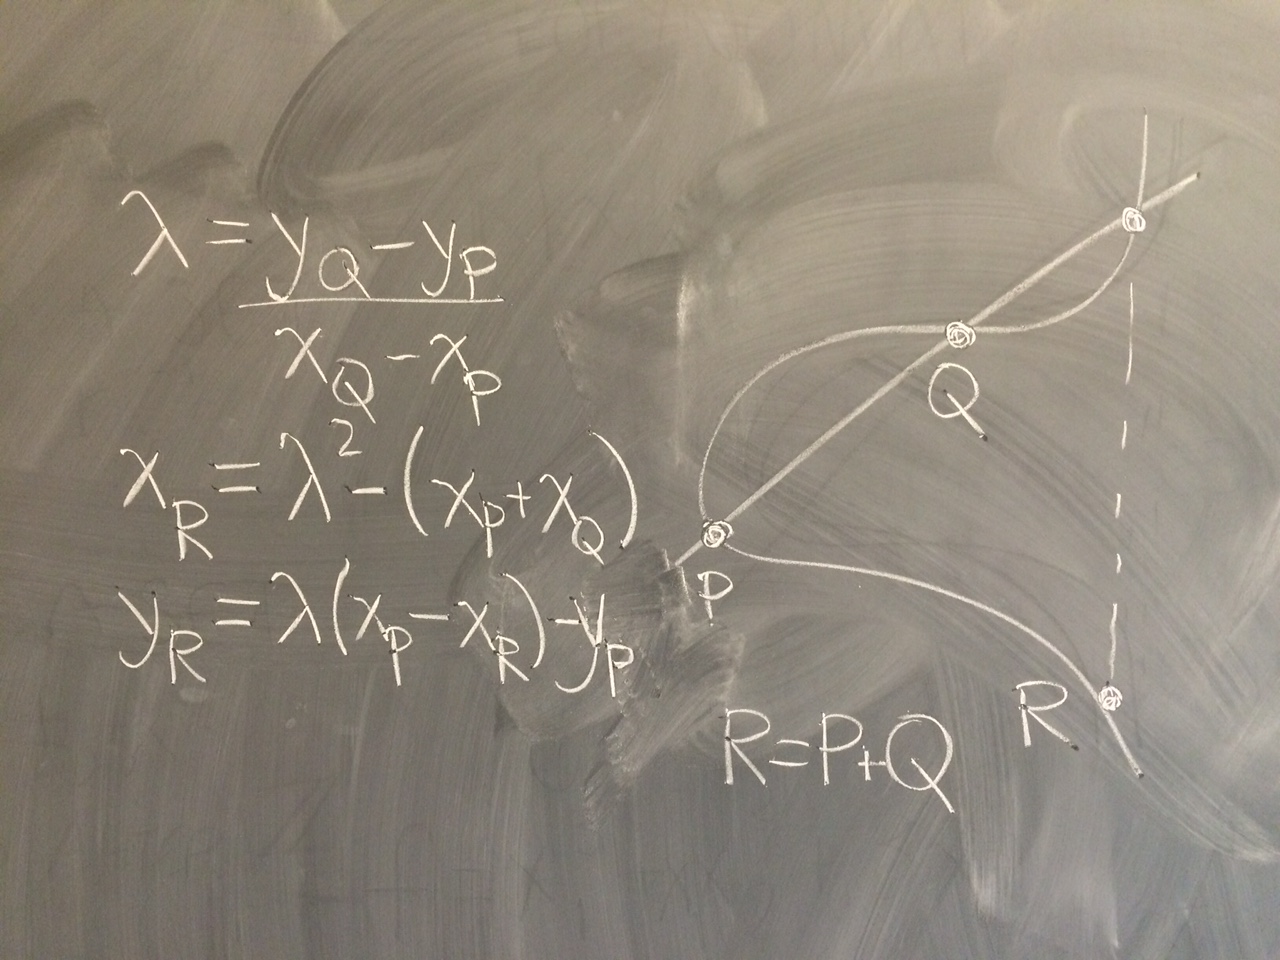 λ = y_Q − y_P
x_Q − x_P
x_R = λ² − (x_P + x_Q)
y_R = λ(x_P − x_R) − y_P
Q
P
R
R = P + Q